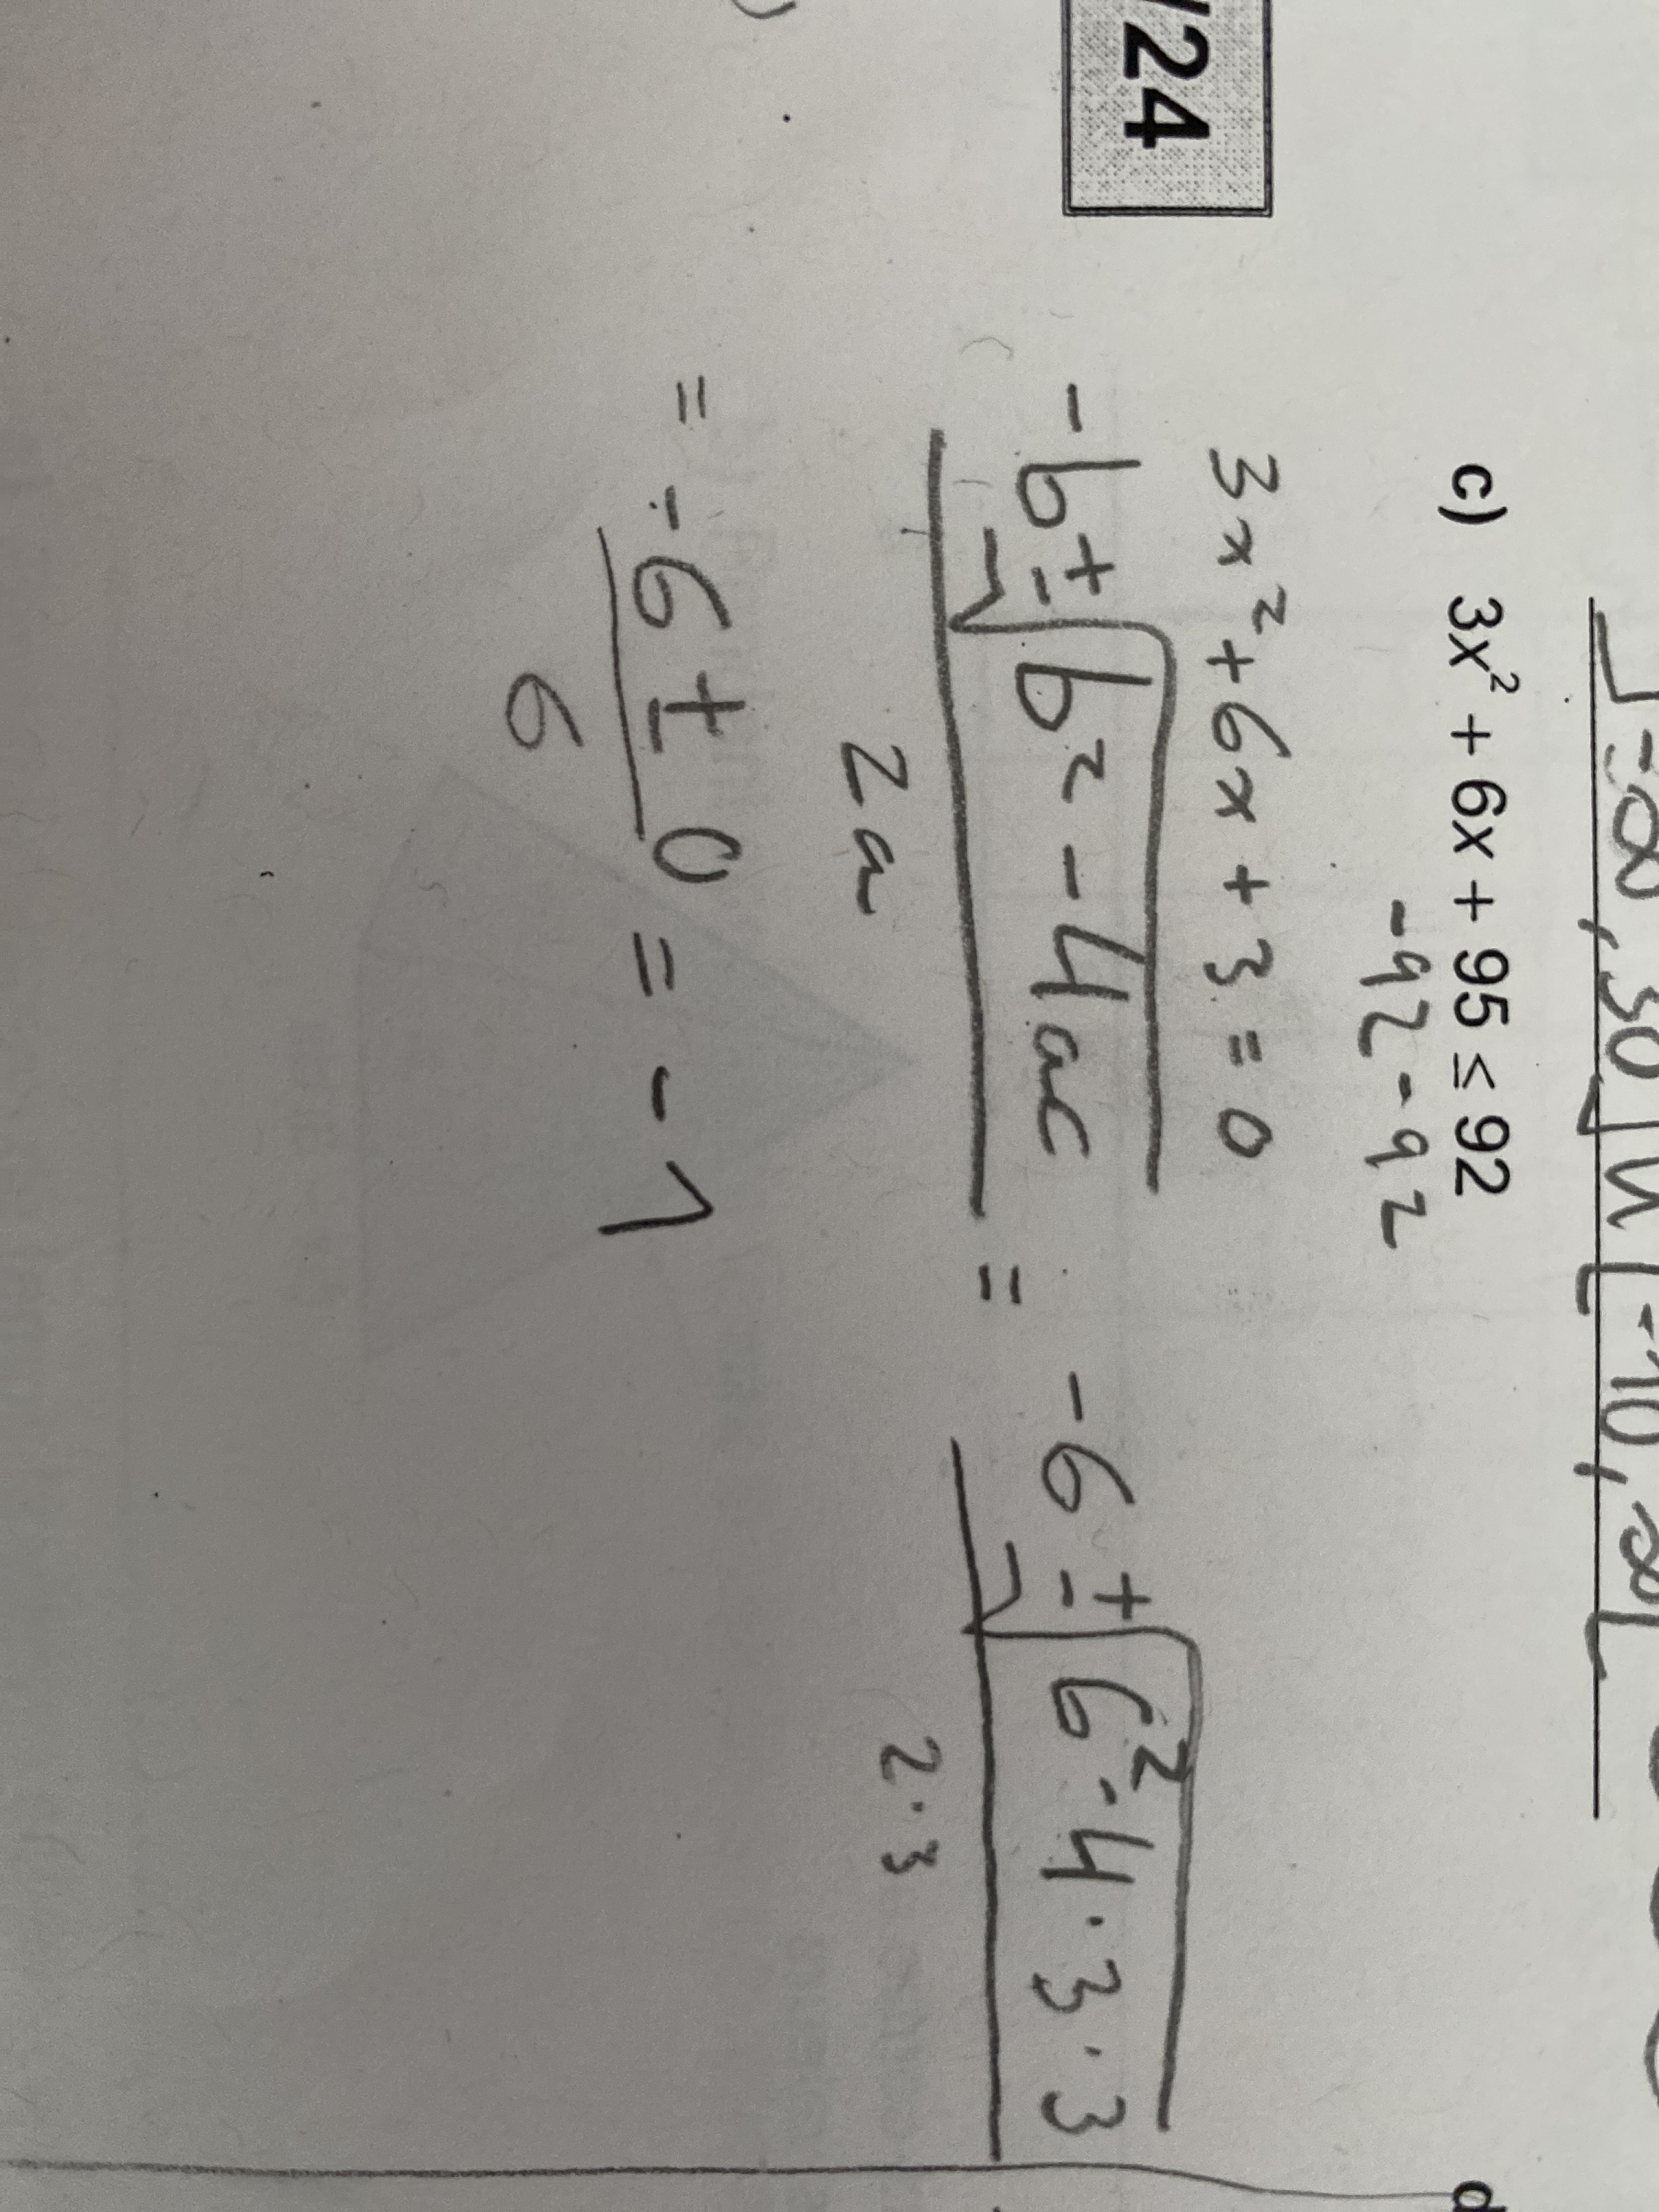 ]-∞, 30] U [-10, ∞[
c) 3x² + 6x + 95 ≤ 92
-92 -92
3x² + 6x + 3 = 0
-b ± √(b² - 4ac) / 2a = -6 ± √(6² - 4 · 3 · 3) / 2 · 3
= -6 ± 0 / 6 = -1
/24
d